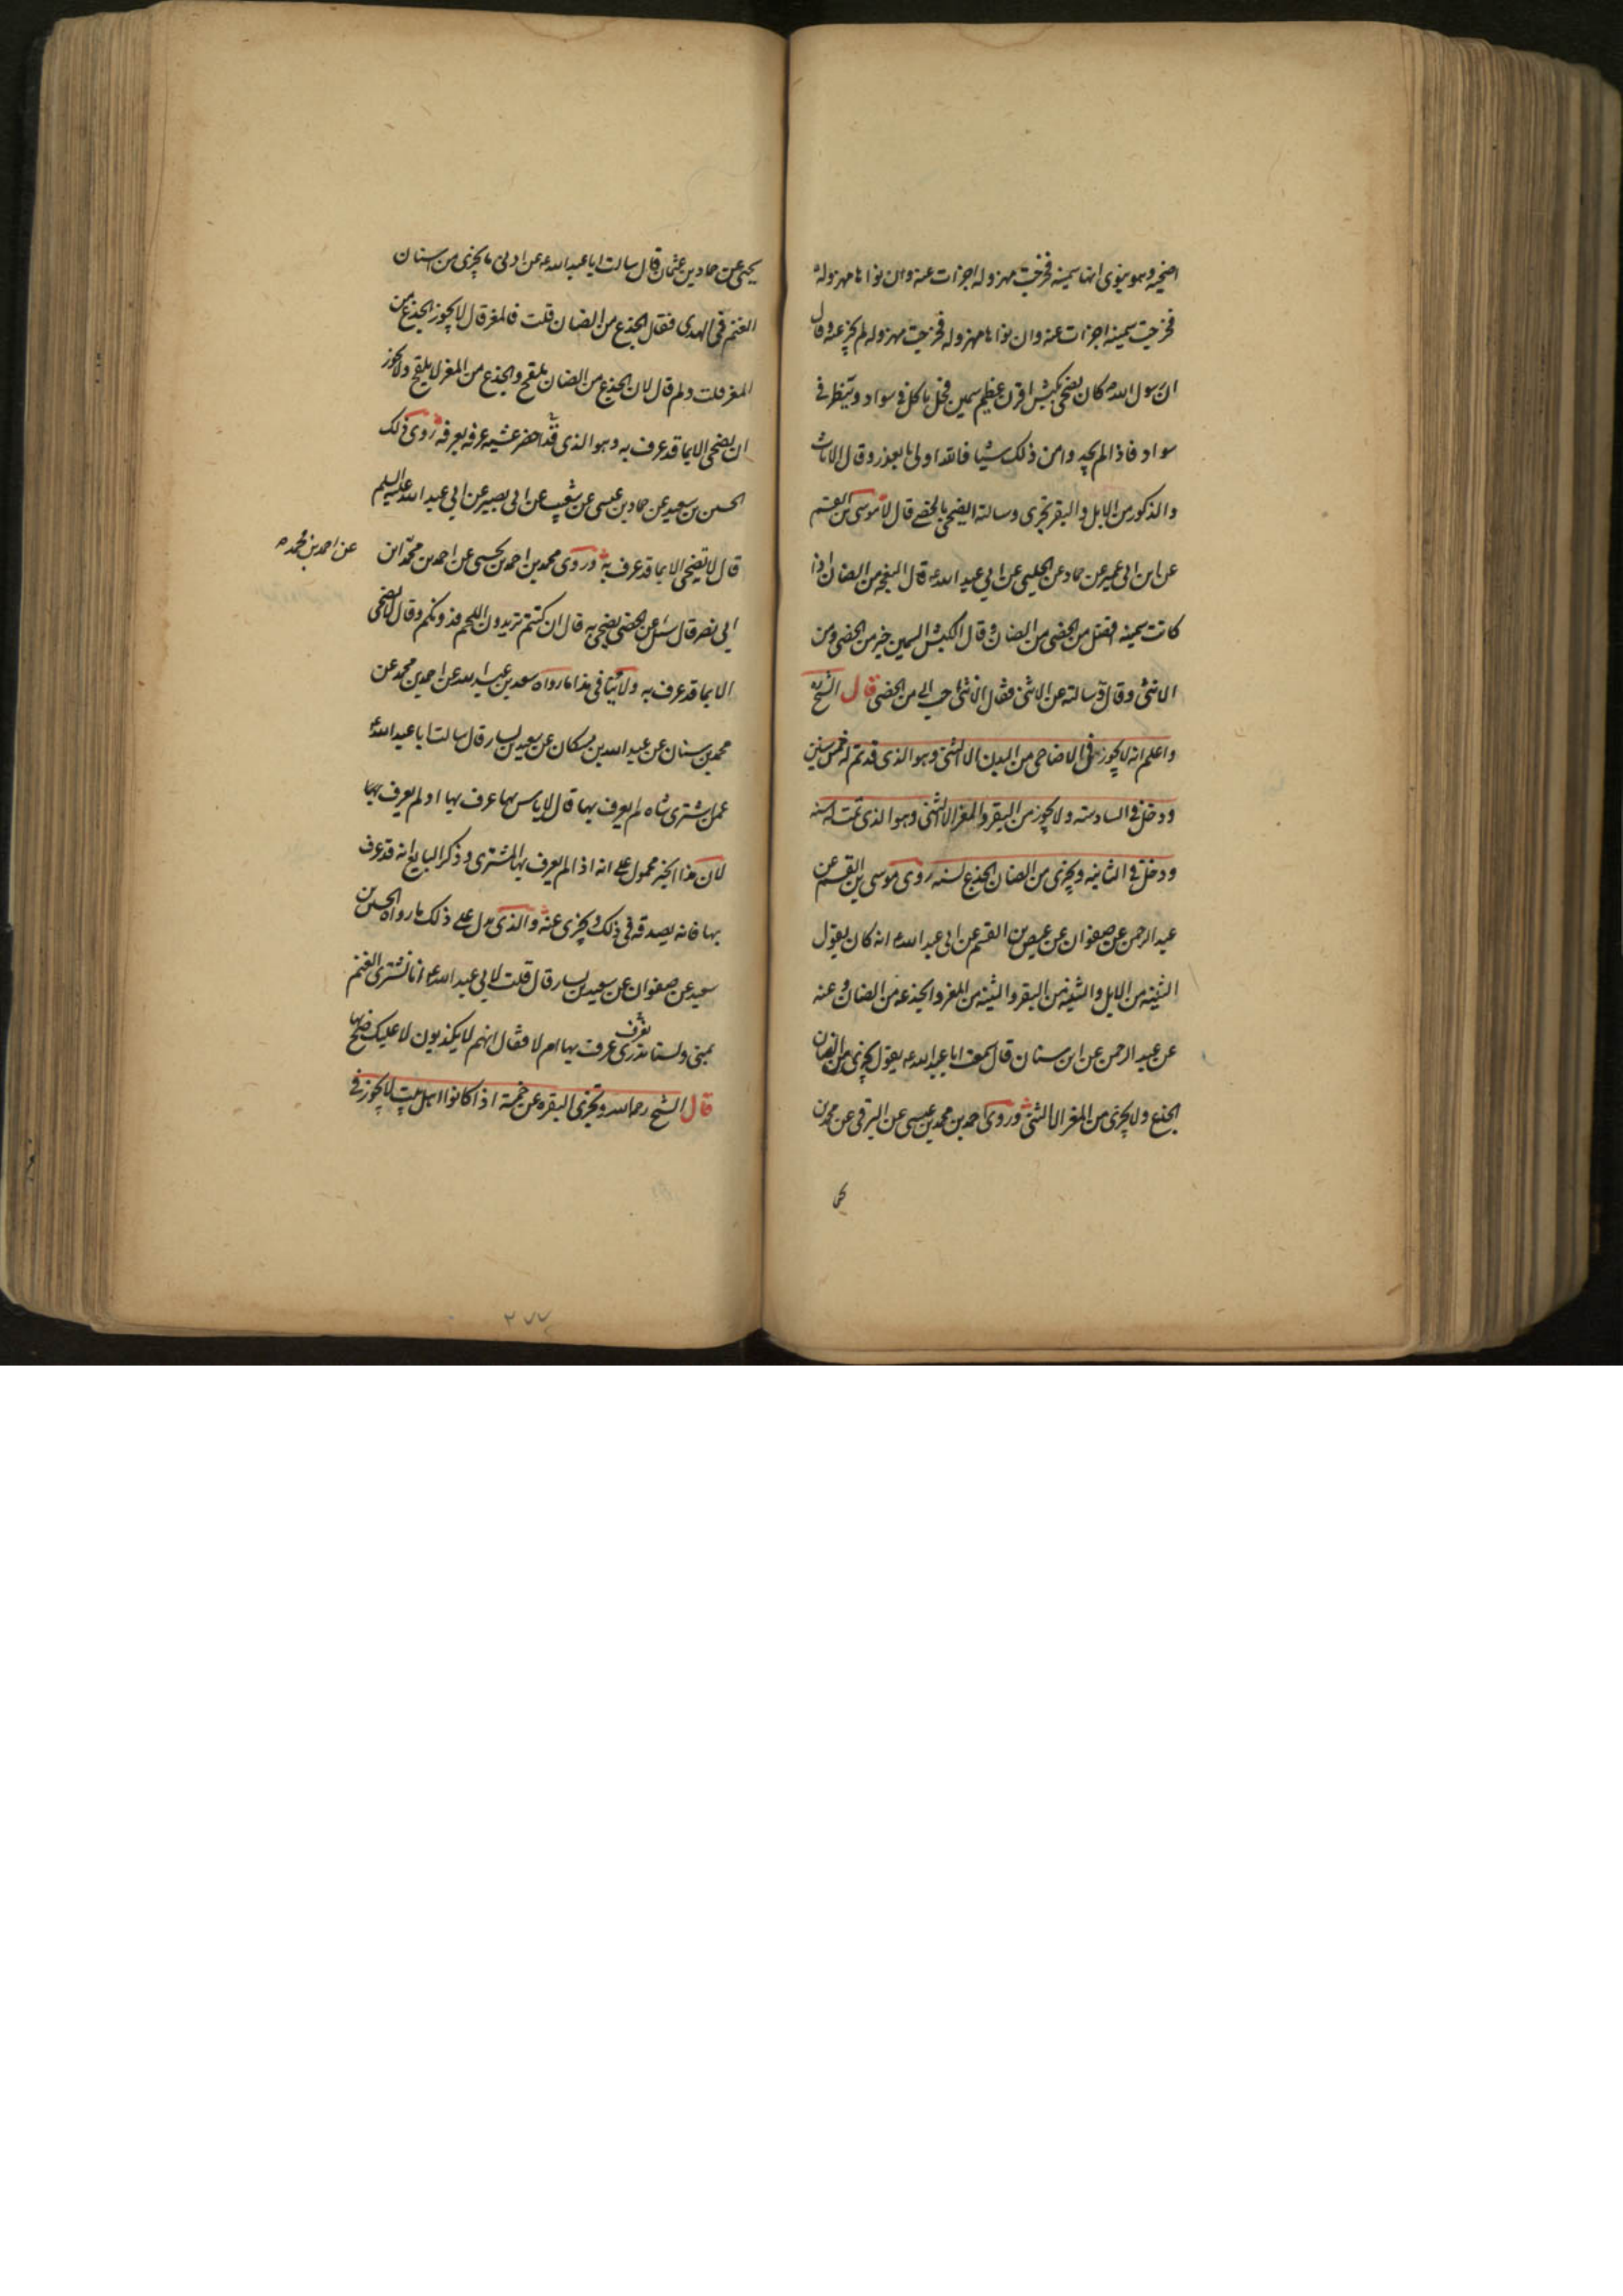 اضحيه وهو ينوى انها سمينه فخرجت مهزوله اجزات عنه وان نواها مهزوله
فخرجت سمينه اجزات عنه وان نواها مهزوله فخرجت مهزوله لم يجز عنه وقال
ان رسول الله كان يضحى بكبش اقرن عظيم سمين فحل ياكل فى سواد وينظر فى
سواد فاذا لم يجدوا من ذلك شيا فالله اولى بالعذر وقال الاناث
والذكور من الابل والبقر تجزى وسالته ايضحى بالخصى قال لا موسى بن القسم
عن ابن ابى عمير عن حماد عن الحلبى عن ابى عبد الله ع قال النعجه من الضان اذا
كانت سمينه افضل من الخصى من الضان وقال الكبش السمين خير من الخصى ومن
الانثى وقال و سالته عن الانثى فقال الانثى احب الى من الخصى قال الشيخ ره
واعلم انه لا يجوز فى الاضاحى من البدن الا الثنى وهو الذى قد تم له خمس سنين
ودخل فى السادسه ولا يجوز من البقر والمعز الا الثنى وهو الذى تمت له سنه
ودخل فى الثانيه ويجزى من الضان الجذع لسنه روى موسى بن القسم عن
عبد الرحمن عن صفوان عن عيص بن القسم عن ابى عبد الله ع انه كان يقول
الثنيه من الابل والثنيه من البقر والثنيه من المعز والجذعه من الضان وعنه
عن عبد الرحمن عن ابن سنان قال سمعت ابا عبد الله ع يقول يجزى من الضان
الجذع ولا يجزى من المعز الا الثنى وروى احمد بن محمد بن عيسى عن البرقى عن محمد بن
يح
يحيى عن حماد بن عثمان قال سالت ابا عبد الله ع عن ادنى ما يجزى من اسنان
الغنم فى الهدى فقال الجذع من الضان قلت فالمعز قال لا يجوز الجذع من
المعز قلت ولم قال لان الجذع من الضان يلقح والجذع من المعز لا يلقح ولا يجوز
ان يضحى الا بما قد عرف به وهو الذى قد احضر عشيه عرفه بعرفه روى ذلك
الحسين بن سعيد عن حماد بن عيسى عن شعيب عن ابى بصير عن ابى عبد الله عليه السلم
قال لا تضحى الا بما قد عرف به وروى محمد بن احمد بن يحيى عن احمد بن محمد ابن
عن احمد بن محمد
ابى نصر قال سئل عن الخصى يضحى به قال ان كنتم تريدون اللحم فدونكم وقال لا تضحى
الا بما قد عرف به ولا ينافى هذا ما رواه سعد بن عبد الله عن احمد بن محمد عن
محمد بن سنان عن عبد الله بن مسكان عن سعيد بن يسار قال سالت ابا عبد الله ع
عمن اشترى شاه لم يعرف بها قال لا باس بها عرف بها او لم يعرف بها
لان هذا الخبر محمول على انه اذا لم يعرف بها المشترى وذكر البايع انه قد عرف
بها فانه يصدقه فى ذلك ويجزى عنه والذى يدل على ذلك ما رواه الحسين بن
سعيد عن صفوان عن سعيد بن يسار قال قلت لابى عبد الله ع انا نشترى الغنم
بمنى ولسنا ندرى عرف بها ام لا فقال انهم لا يكذبون لا عليك ضح بها
قال الشيخ رحمه الله وتجزى البقره عن خمسة اذا كانوا اهل بيت لا يجوز فى
٢٧٧